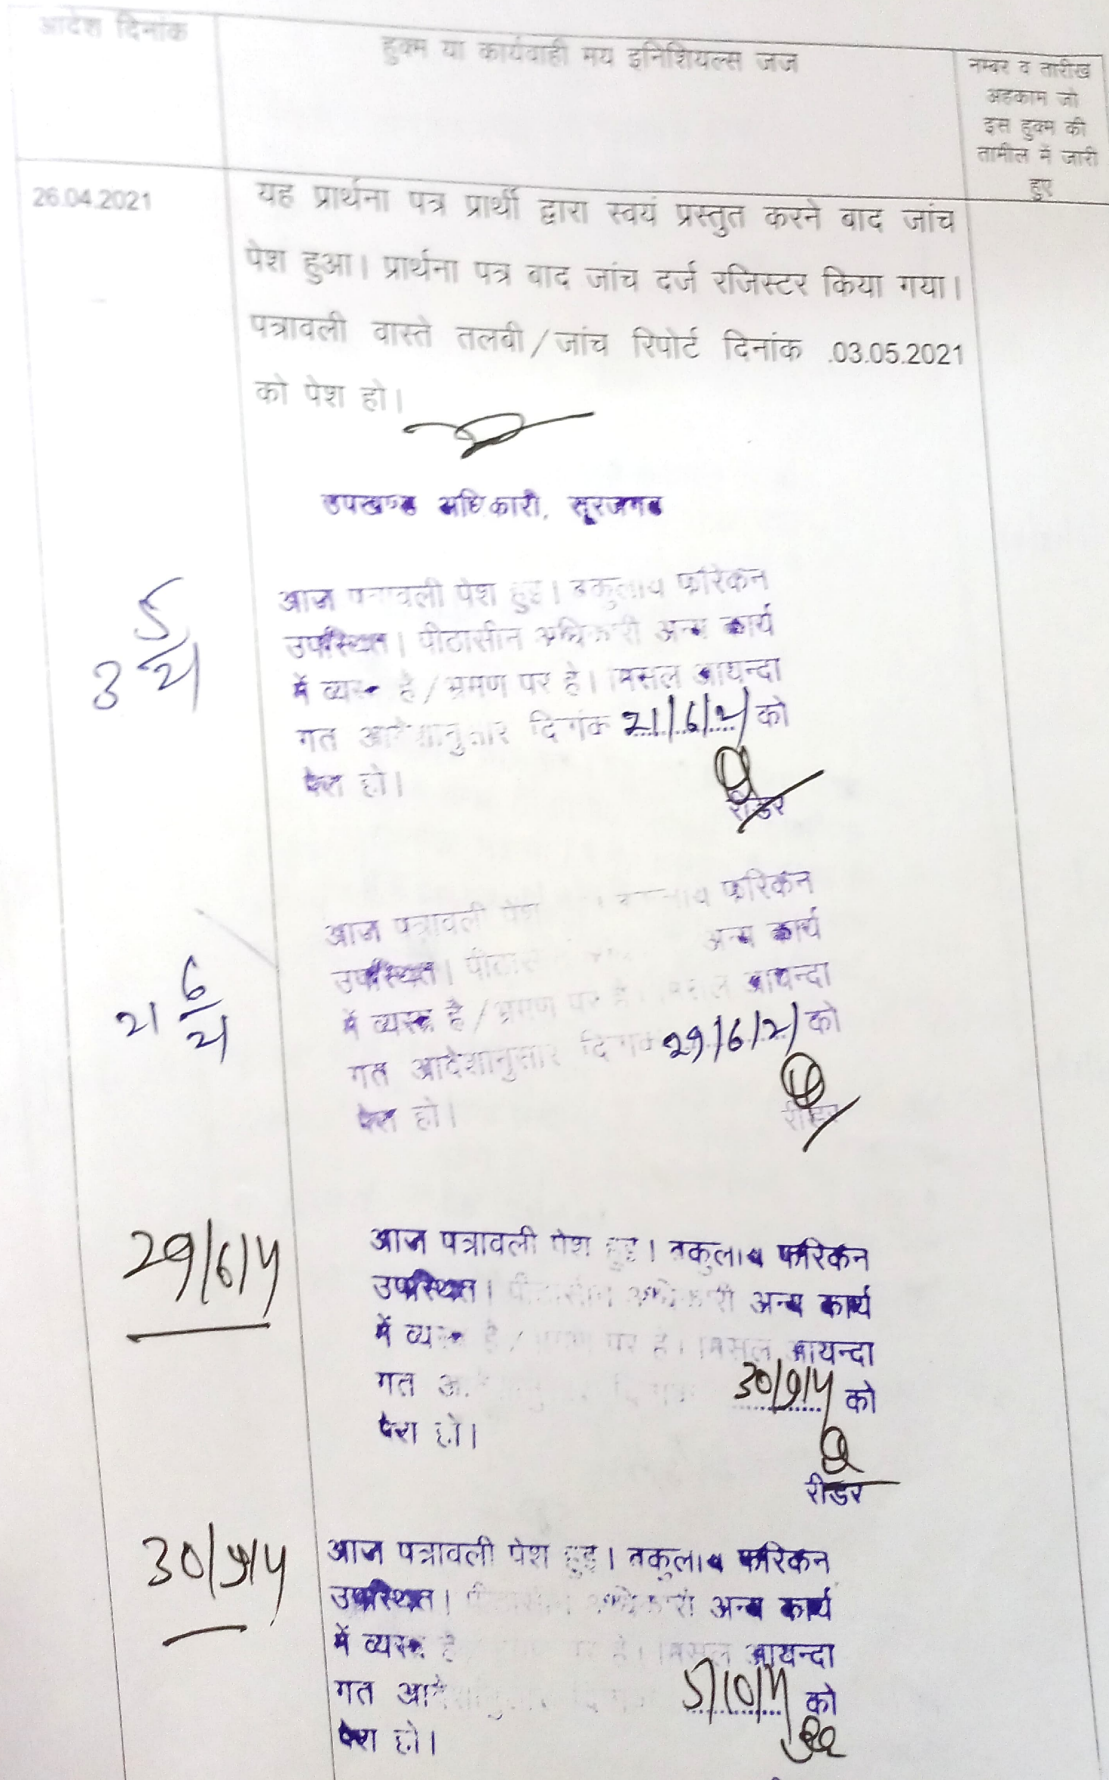 आदेश दिनांक
हुक्म या कार्यवाही मय इनिशियल्स जज
नम्बर व तारीख
अहकाम जो
इस हुक्म की
तामील में जारी
हुए
26.04.2021
यह प्रार्थना पत्र प्रार्थी द्वारा स्वयं प्रस्तुत करने बाद जांच
पेश हुआ। प्रार्थना पत्र बाद जांच दर्ज रजिस्टर किया गया।
पत्रावली वास्ते तलबी/जांच रिपोर्ट दिनांक .03.05.2021
को पेश हो।
उपखण्ड अधिकारी, सूरजगढ
3 5/21
आज पत्रावली पेश हुई। वकुलाय फरिकेन
उपस्थित। पीठासीन अधिकारी अन्य कार्य
में व्यस्त है/भ्रमण पर है। मिसल आयन्दा
गत आदेशानुसार दिनांक 21/6/21 को
पेश हो।
रीडर
21 6/21
आज पत्रावली पेश फरिकेन
उपस्थित। अन्य कार्य
में व्यस्त है/भ्रमण पर है। मिसल आयन्दा
गत आदेशानुसार दिनांक 29/6/21 को
पेश हो।
रीडर
29/6/21
आज पत्रावली पेश हुई। वकुलाय फरिकेन
उपस्थित। पीठासीन अधिकारी अन्य कार्य
में व्यस्त है/भ्रमण पर है। मिसल आयन्दा
गत 30/9/21 को
पेश हो।
रीडर
30/9/21
आज पत्रावली पेश हुई। वकुलाय फरिकेन
उपस्थित। अधिकारी अन्य कार्य
में व्यस्त है पर है। मिसल आयन्दा
गत आदेशानुसार 5/10/21 को
पेश हो।